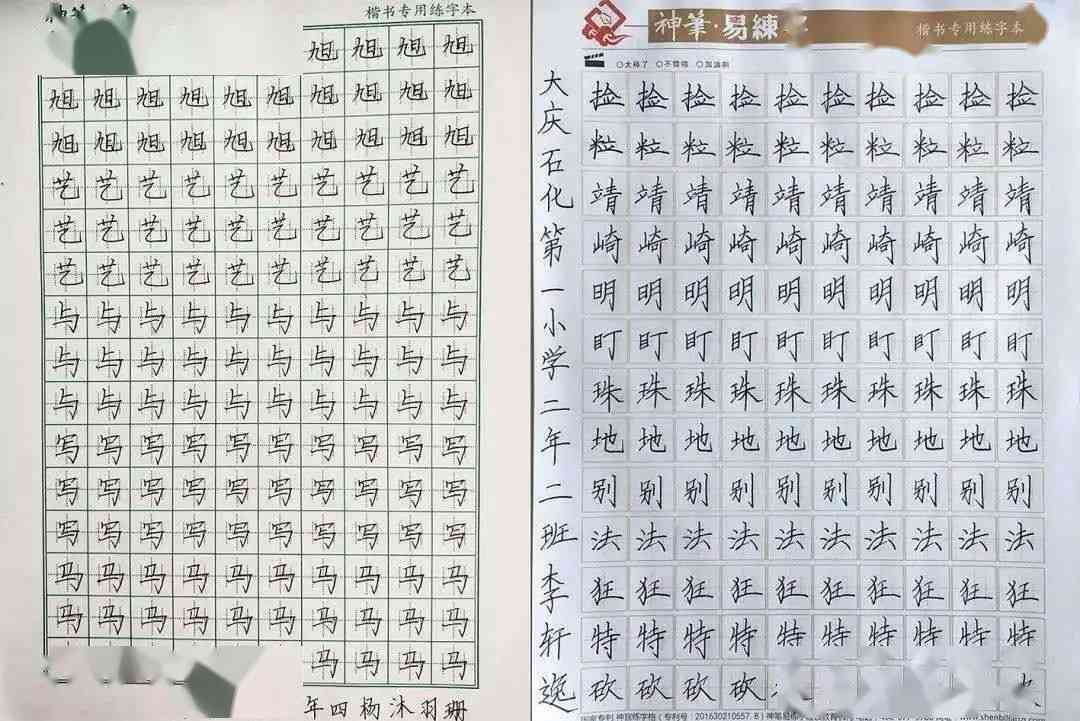 楷书专用练字本
旭 旭 旭 旭
旭 旭 旭 旭 旭 旭 旭 旭 旭 旭
旭 旭 旭 旭 旭 旭 旭 旭 旭 旭
艺 艺 艺 艺 艺 艺 艺 艺 艺 艺
艺 艺 艺 艺 艺 艺 艺 艺 艺 艺
艺 艺 艺 艺 艺 艺 艺 艺 艺 艺
与 与 与 与 与 与 与 与 与 与
与 与 与 与 与 与 与 与 与 与
与 与 与 与 与 与 与 与 与 与
写 写 写 写 写 写 写 写 写 写
写 写 写 写 写 写 写 写 写 写
写 写 写 写 写 写 写 写 写 写
马 马 马 马 马 马 马 马 马 马
马 马 马 马 马 马 马 马 马 马
马 马 马 马
年四杨沐羽珊
神筆·易練
楷书专用练字本
太棒了 不错哦 加油啊
大庆石化第一小学二年二班李轩逸
捡 捡 捡 捡 捡 捡 捡 捡 捡 捡
粒 粒 粒 粒 粒 粒 粒 粒 粒 粒
靖 靖 靖 靖 靖 靖 靖 靖 靖 靖
崎 崎 崎 崎 崎 崎 崎 崎 崎 崎
明 明 明 明 明 明 明 明 明 明
盯 盯 盯 盯 盯 盯 盯 盯 盯 盯
珠 珠 珠 珠 珠 珠 珠 珠 珠 珠
地 地 地 地 地 地 地 地 地 地
别 别 别 别 别 别 别 别 别 别
法 法 法 法 法 法 法 法 法 法
狂 狂 狂 狂 狂 狂 狂 狂 狂 狂
特 特 特 特 特 特 特 特 特 特
砍 砍 砍 砍